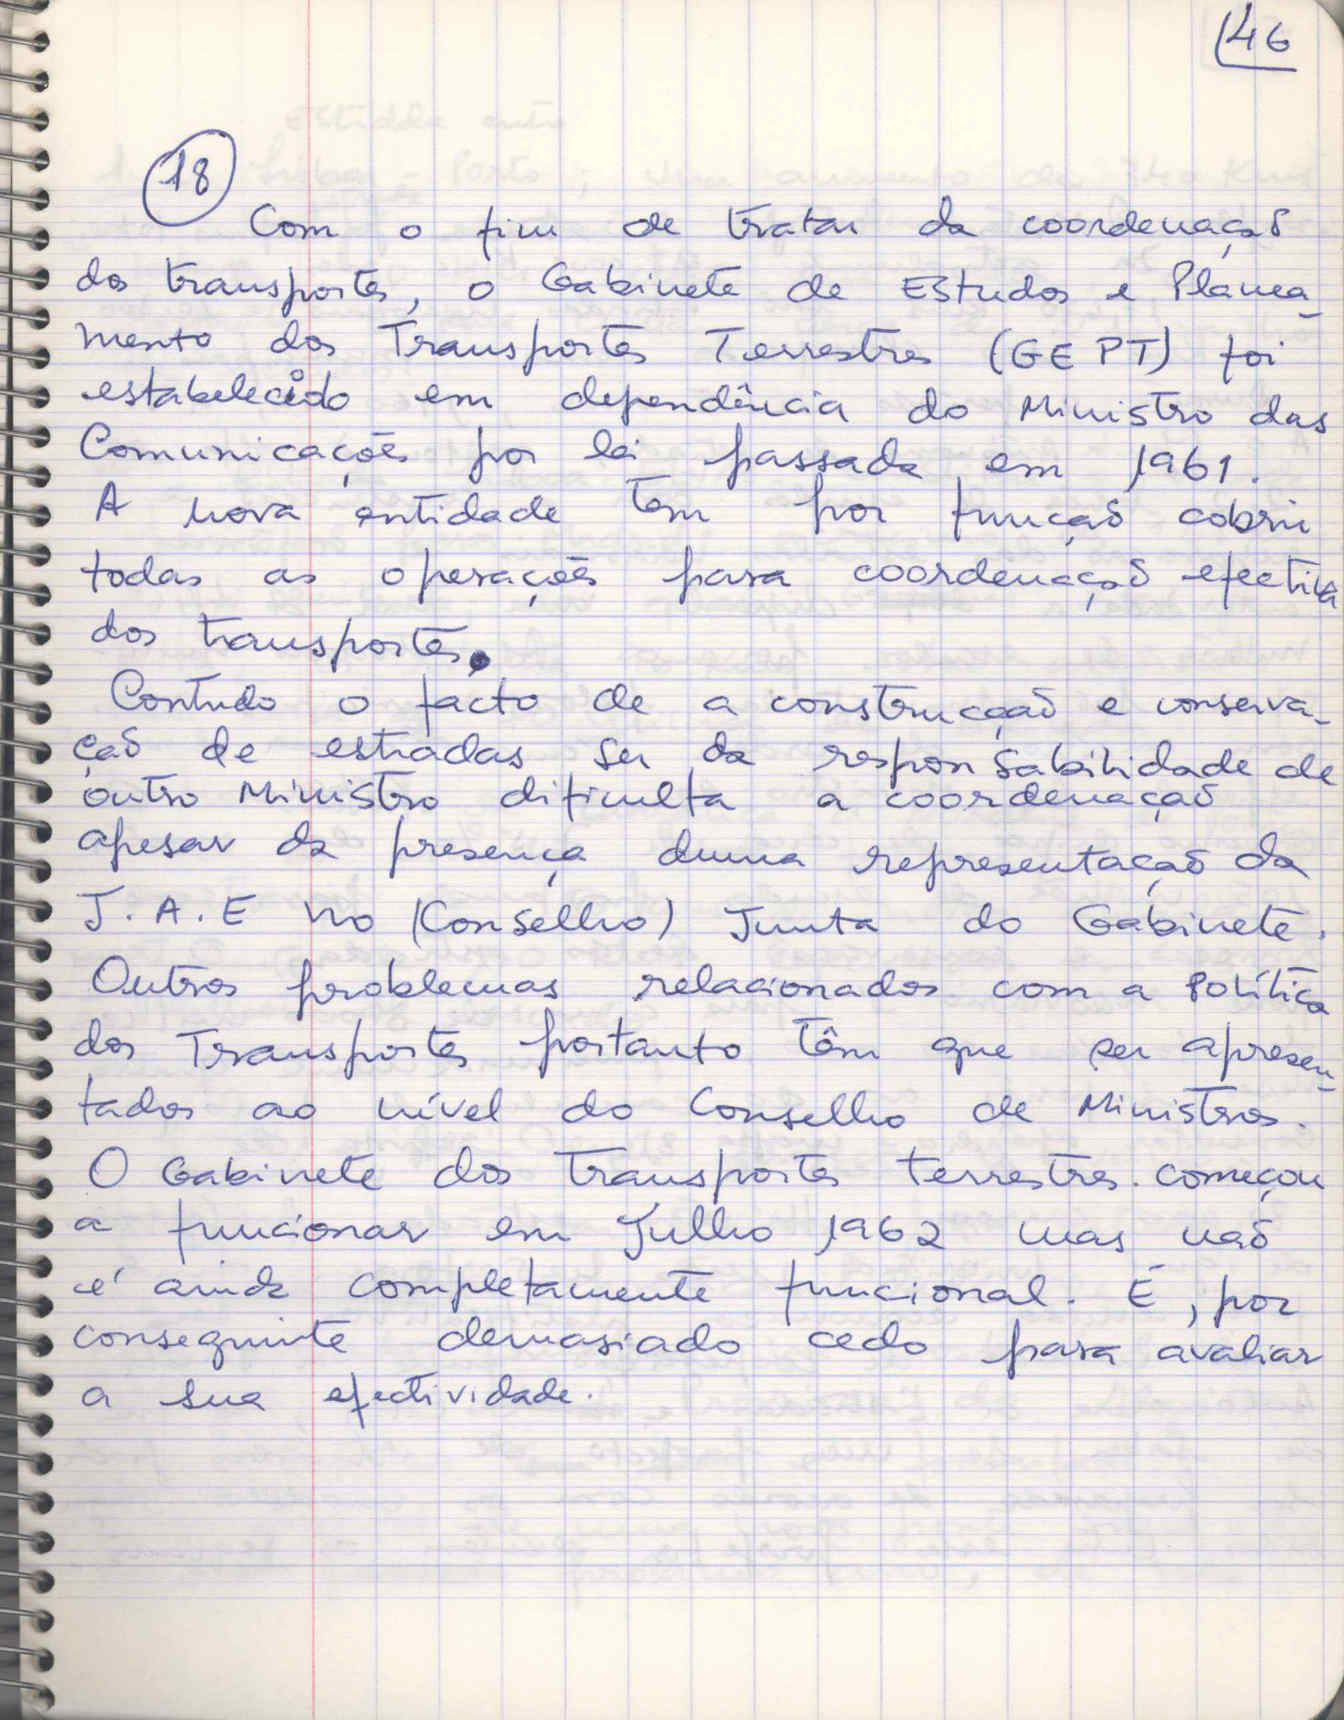 46
18
Com o fim de tratar da coordenação
dos transportes, o Gabinete de Estudos e Planea-
mento dos Transportes Terrestres (GEPT) foi
estabelecido em dependência do Ministro das
Comunicações por lei passada em 1961.
A nova entidade tem por função cobrir
todas as operações para coordenação efectiva
dos transportes.
Contudo o facto de a construcção e conserva-
ção de estradas ser da responsabilidade de
outro Ministro dificulta a coordenação
apesar da presença duma representação da
J.A.E no (Conselho) Junta do Gabinete.
Outros problemas relacionados com a Política
dos Transportes portanto têm que ser apresen-
tados ao nível do Conselho de Ministros.
O Gabinete dos Transportes terrestres. começou
a funcionar em Julho 1962 mas não
é ainda completamente funcional. É, por
conseguinte demasiado cedo para avaliar
a sua efectividade.